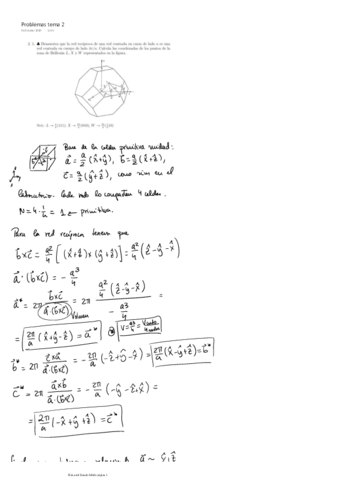 Problemas tema 2
2. 1. ♣ Demuestra que la red recíproca de una red centrada en caras de lado a es una
red centrada en cuerpo de lado 4π/a. Calcula las coordenadas de los puntos de la
zona de Brillouin L, X y W representados en la figura.
Base de la celda primitiva unidad:
a⃗ = a/2 (x̂+ŷ), b⃗ = a/2 (x̂+ẑ),
c⃗ = a/2 (ŷ+ẑ), como sim en el
laboratorio. Cada nodo lo comparten 4 celdas.
N = 4 · 1/4 = 1 ← primitiva.
Para la red recíproca tenemos que
b⃗×c⃗ = a²/4 [(x̂+ẑ)×(ŷ+ẑ)] = a²/4 (ẑ-ŷ-x̂)
a⃗·(b⃗×c⃗) = - a³/4
a⃗* = 2π b⃗×c⃗ / a⃗·(b⃗×c⃗) = 2π a²/4 (ẑ-ŷ-x̂) / -a³/4 =
Volumen
= 2π/a (x̂+ŷ-ẑ) = a⃗*
b⃗* = 2π c⃗×a⃗ / a⃗·(b⃗×c⃗) = -2π/a (-ẑ+ŷ-x̂) = 2π/a (x̂-ŷ+ẑ) = b⃗*
c⃗* = 2π a⃗×b⃗ / a⃗·(b⃗×c⃗) = -2π/a (-ŷ-ẑ+x̂) =
= 2π/a (-x̂+ŷ+ẑ) = c⃗*